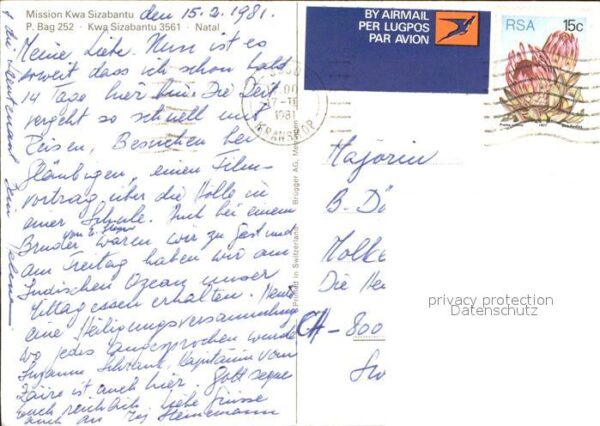 Mission Kwa Sizabantu den 15.2.1981.
P. Bag 252 · Kwa Sizabantu 3561 · Natal
Meine Liebe. Nun ist es
soweit dass ich schon bald
14 Tage hier bin. Die Zeit
vergeht so schnell mit
Reisen, Besuchen bei
Gläubigen, einen Film-
vortrag über die Hölle in
einer Schule. Auch bei einem
Bruder waren wir zu Gast und
am Freitag haben wir am
Indischen Ozean unser
Mittagessen erhalten. Heute
eine Heiligungsversammlung
wo jedes angesprochen wurde
Susanne Kapitänin vom
Zaire ist auch hier. Gott segne
euch reichlich. Liebe Grüsse
auch an
Printed in Switzerland Brügger AG, Meiringen
BY AIRMAIL
PER LUGPOS
PAR AVION
RSA 15c
1981
KRANSKOP
Majorin
B.
Die
CH-800
privacy protection
Datenschutz